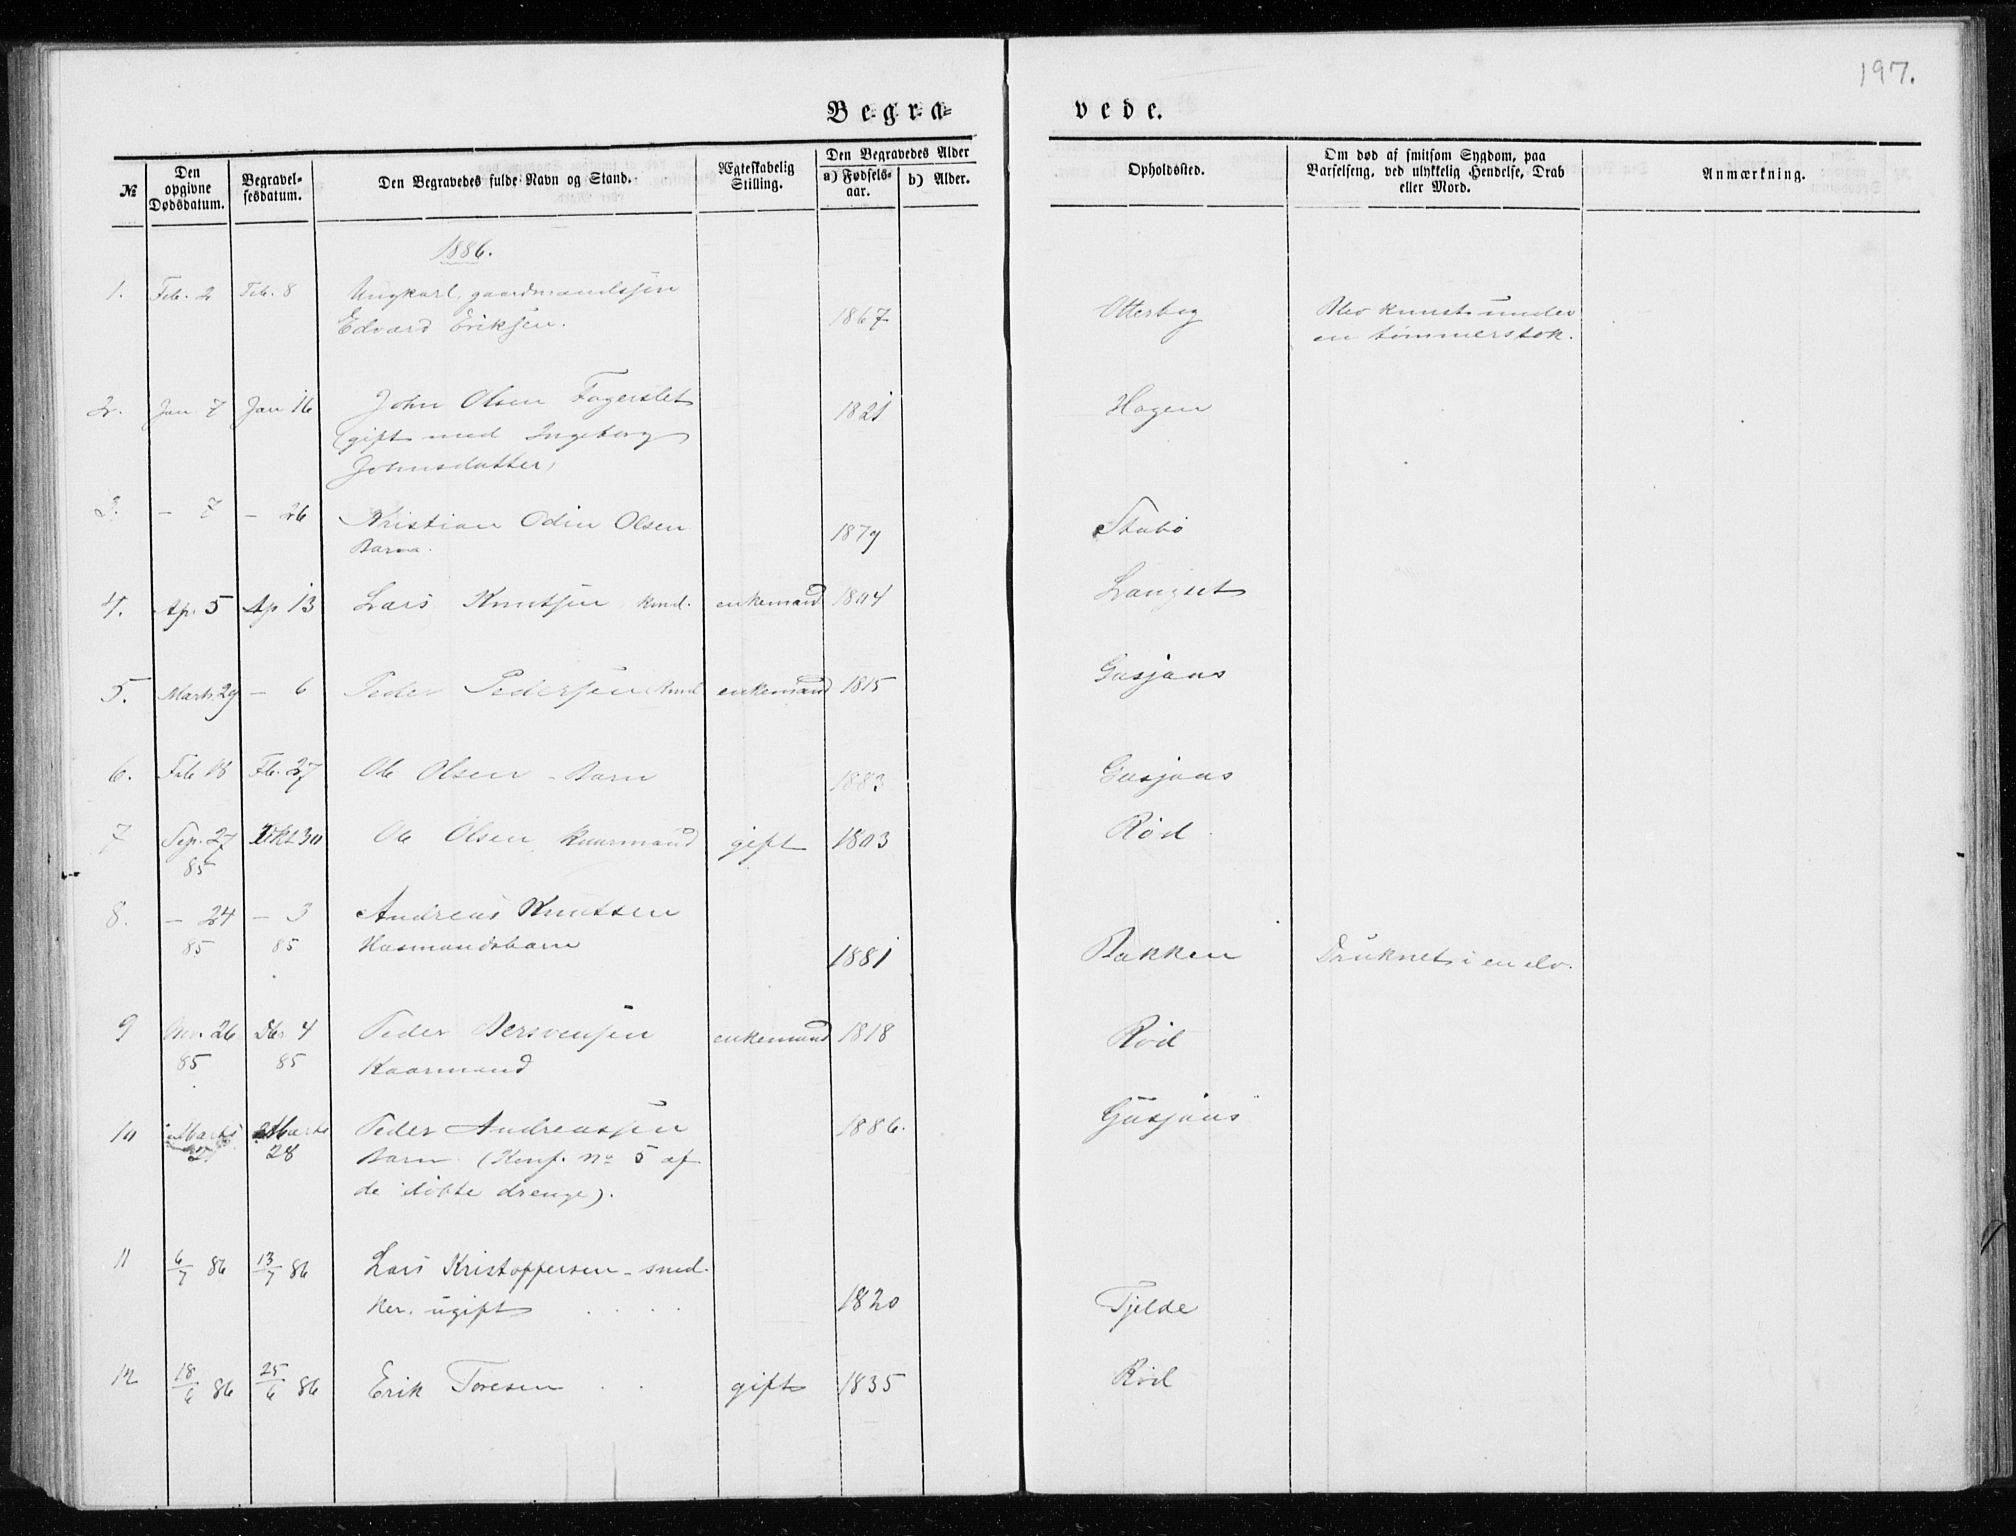 197.
Begra= vede.
№
Den opgivne Dødsdatum.
Begravel-sesdatum.
Den Begravedes fulde Navn og Stand.
Ægteskabelig Stilling.
Den Begravedes Alder
a) Fødsels-aar.
b) Alder.
Opholdssted.
Om død af smitsom Sygdom, paa Barselseng, ved ulykkelig Hendelse, Drab eller Mord.
Anmærkning.
1886.
1. Feb. 2 Feb. 8 Ungkarl, gaardmandssøn
Edvard Eriksen. 1867 Otterbeg Blev knust under
en tømmerstok.
2. Jan 7 Jan 16 John Olsen Fagerslet 1821 Hagen
(gift med Ingeborg
Johnsdatter)
3. – 7 – 26 Kristian Odin Olsen 1879 Stubø
Barn.
4. Ap. 5 Ap 13 Lars Knutsen, kmd. enkemand 1804 Langset
5. Marts 29 – 6 Peder Pedersen kmd enkemand 1815 Gusjaas
6. Feb 18 Fb. 27 Ole Olsen – Barn 1883 Gusjaas
7 Sep. 27 Okt 30 Ole Olsen, kaarmand gift 1803 Rød
85
8. – 24 – 3 Andreas Knutsen
85 85 Husmandsbarn 1881 Bakken Druknet i en elv.
9 Nov. 26 Dbr 4 Peder Bersvensen enkemand 1818 Rød
85 85 Kaarmand
10 Marts Marts Peder Andreassen 1886. Gusjaas
21 28 Barn. (Konf. No 5 af
de døbte drenge).
11 6/7 86 13/7 86 Lars Kristoffersen – sned-
ker. ugift . . . . 1820 Tjelde
12 18/6 86 25/6 86 Erik Toresen . . gift 1835 Rød